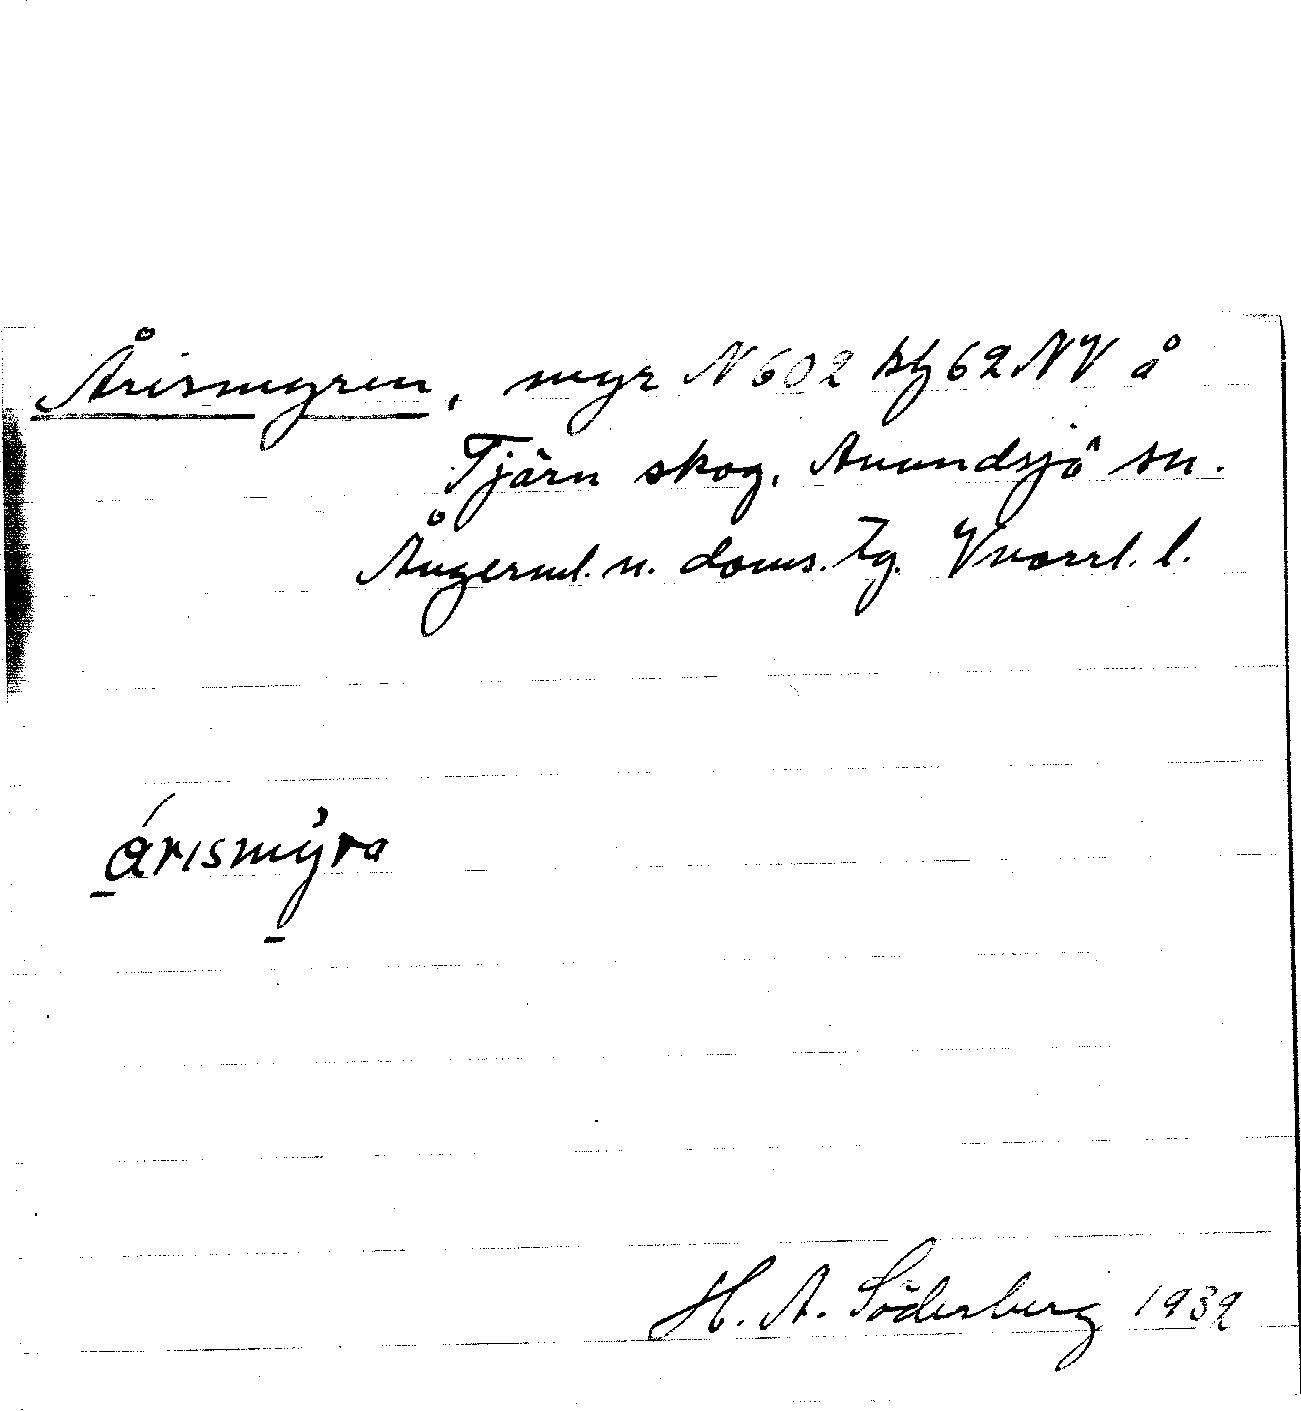 Årismyren, myr N 602 kbl 62 NV å
Tjärn skog. Anundsjö sn.
Ångerml. n. doms. Tg. Vnorrl. l.
årismyra
H. A. Söderberg 1939